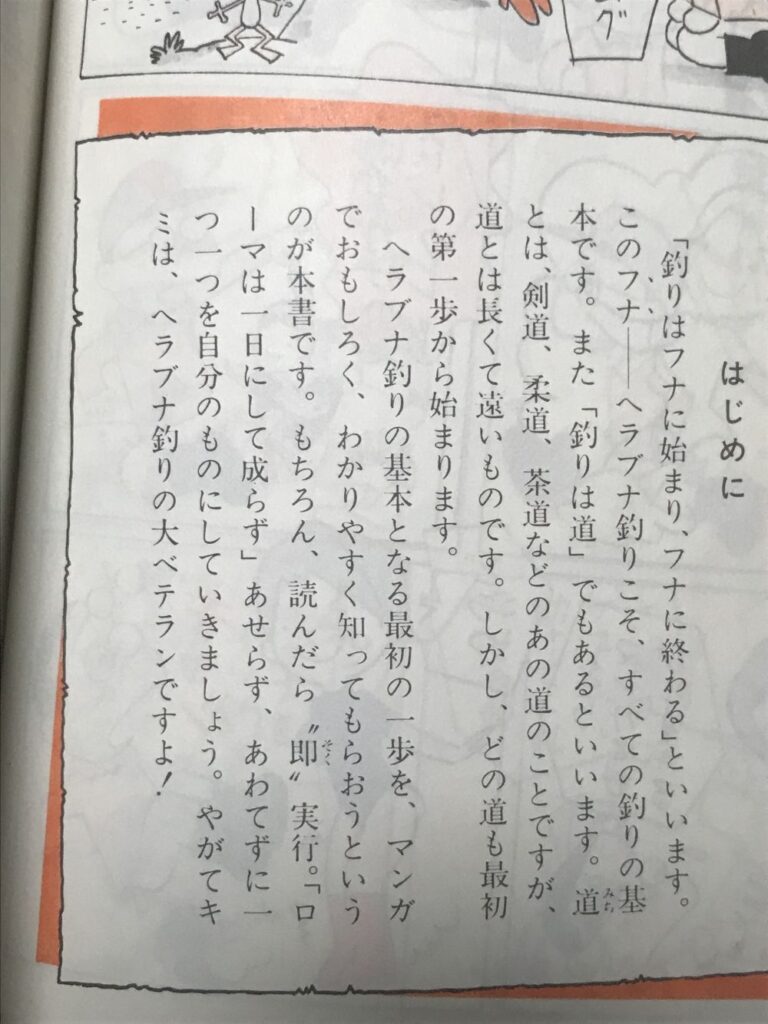 ング
はじめに
「釣りはフナに始まり、フナに終わる」といいます。
このフナ――ヘラブナ釣りこそ、すべての釣りの基
本です。また「釣りは道」でもあるといいます。道
とは、剣道、柔道、茶道などのあの道のことですが、
道とは長くて遠いものです。しかし、どの道も最初
の第一歩から始まります。
ヘラブナ釣りの基本となる最初の一歩を、マンガ
でおもしろく、わかりやすく知ってもらおうという
のが本書です。もちろん、読んだら〝即〟実行。「ロ
ーマは一日にして成らず」あせらず、あわてずに一
つ一つを自分のものにしていきましょう。やがてキ
ミは、ヘラブナ釣りの大ベテランですよ!